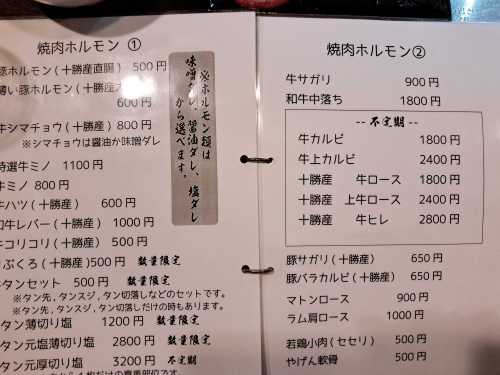 焼肉ホルモン ①
豚ホルモン (十勝産直腸) 500円
薄い豚ホルモン (十勝産
600円
牛シマチョウ (十勝産) 800円
※シマチョウは醤油か味噌ダレ
特選牛ミノ 1100円
牛ミノ 800円
牛ハツ (十勝産) 600円
和牛レバー (十勝産) 1000円
牛コリコリ (十勝産) 500円
ぶくろ (十勝産) 500円 数量限定
牛タンセット 500円 数量限定
※タン先,タンスジ,タン切落しなどのセットです。
※タン先,タンスジ,タン切落しだけの時もあります。
タン薄切り塩 1200円 数量限定
タン元塩薄切り塩 2800円 数量限定
タン元厚切り塩 3200円 不定期
※ホルモン類は
味噌ダレ、醤油ダレ、塩ダレ
から選べます。
焼肉ホルモン②
牛サガリ 900円
和牛中落ち 1800円
-- 不定期 --
牛カルビ 1800円
牛上カルビ 2400円
十勝産 牛ロース 1800円
十勝産 上牛ロース 2400円
十勝産 牛ヒレ 2800円
豚サガリ (十勝産) 650円
豚バラカルビ (十勝産) 650円
マトンロース 900円
ラム肩ロース 1000円
若鶏小肉 (セセリ) 500円
やげん軟骨 500円